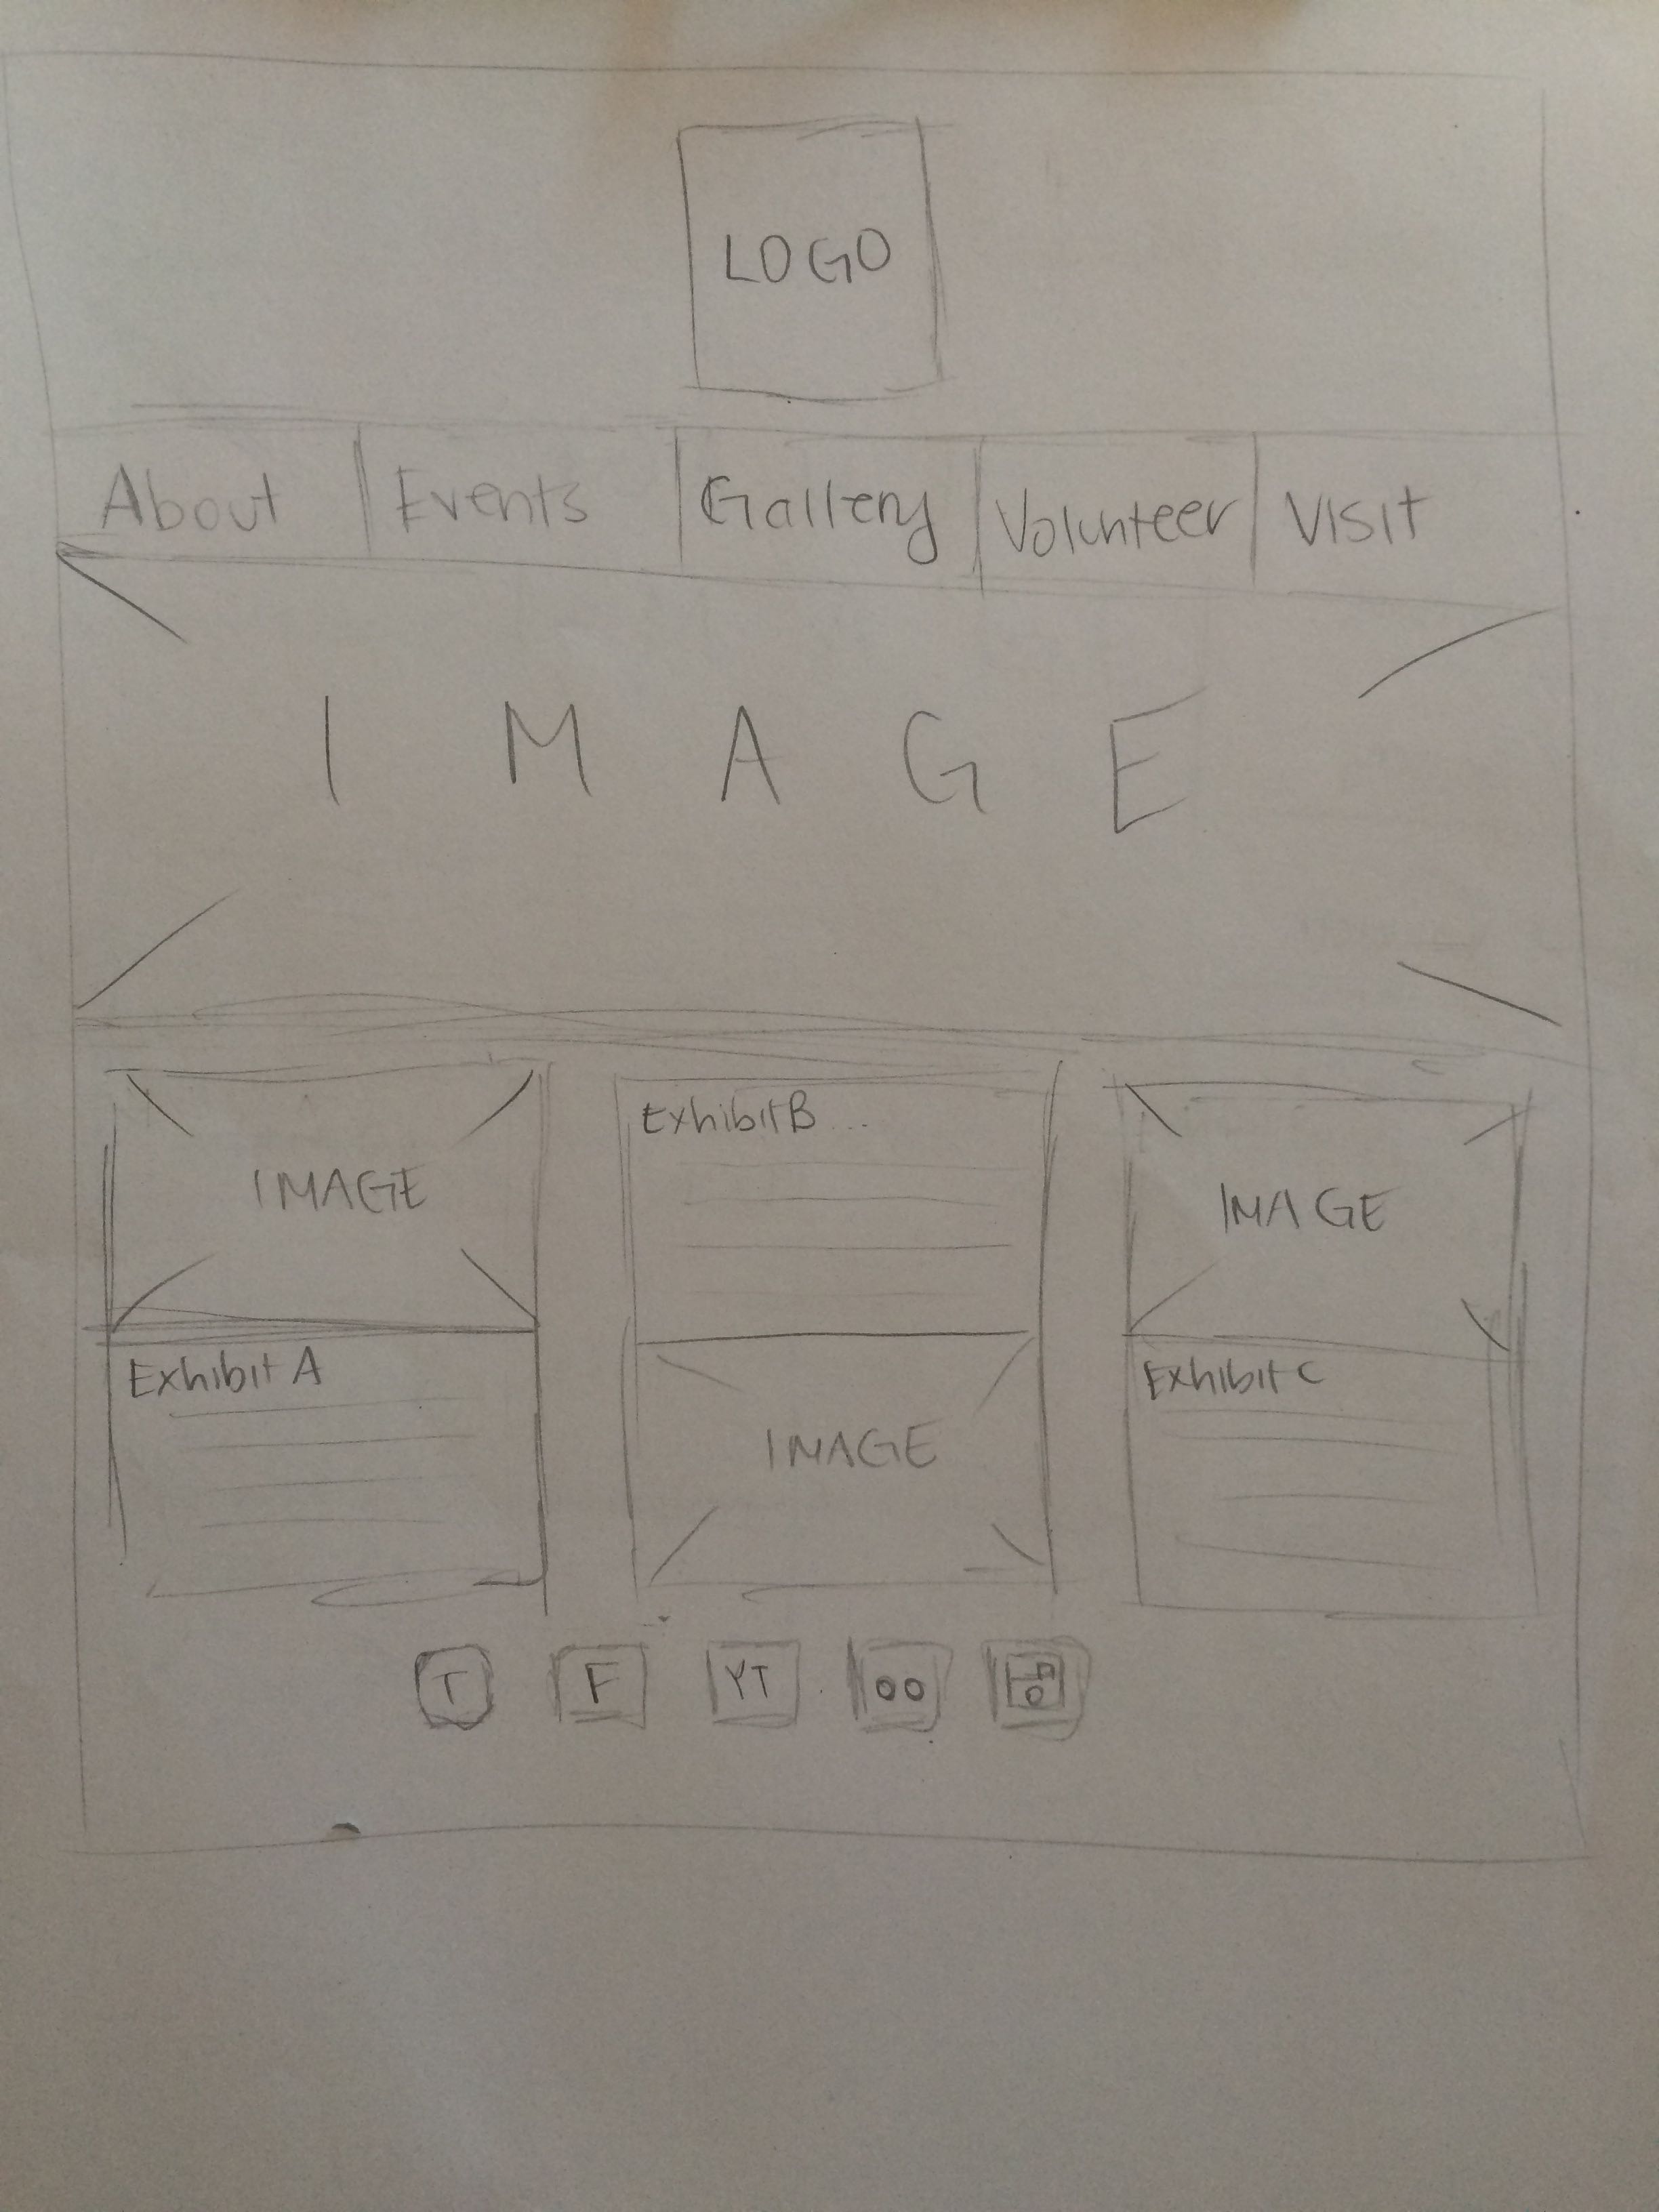 LOGO
About Events Gallery Volunteer Visit
IMAGE
IMAGE
Exhibit A
Exhibit B ...
IMAGE
IMAGE
Exhibit C
T F YT